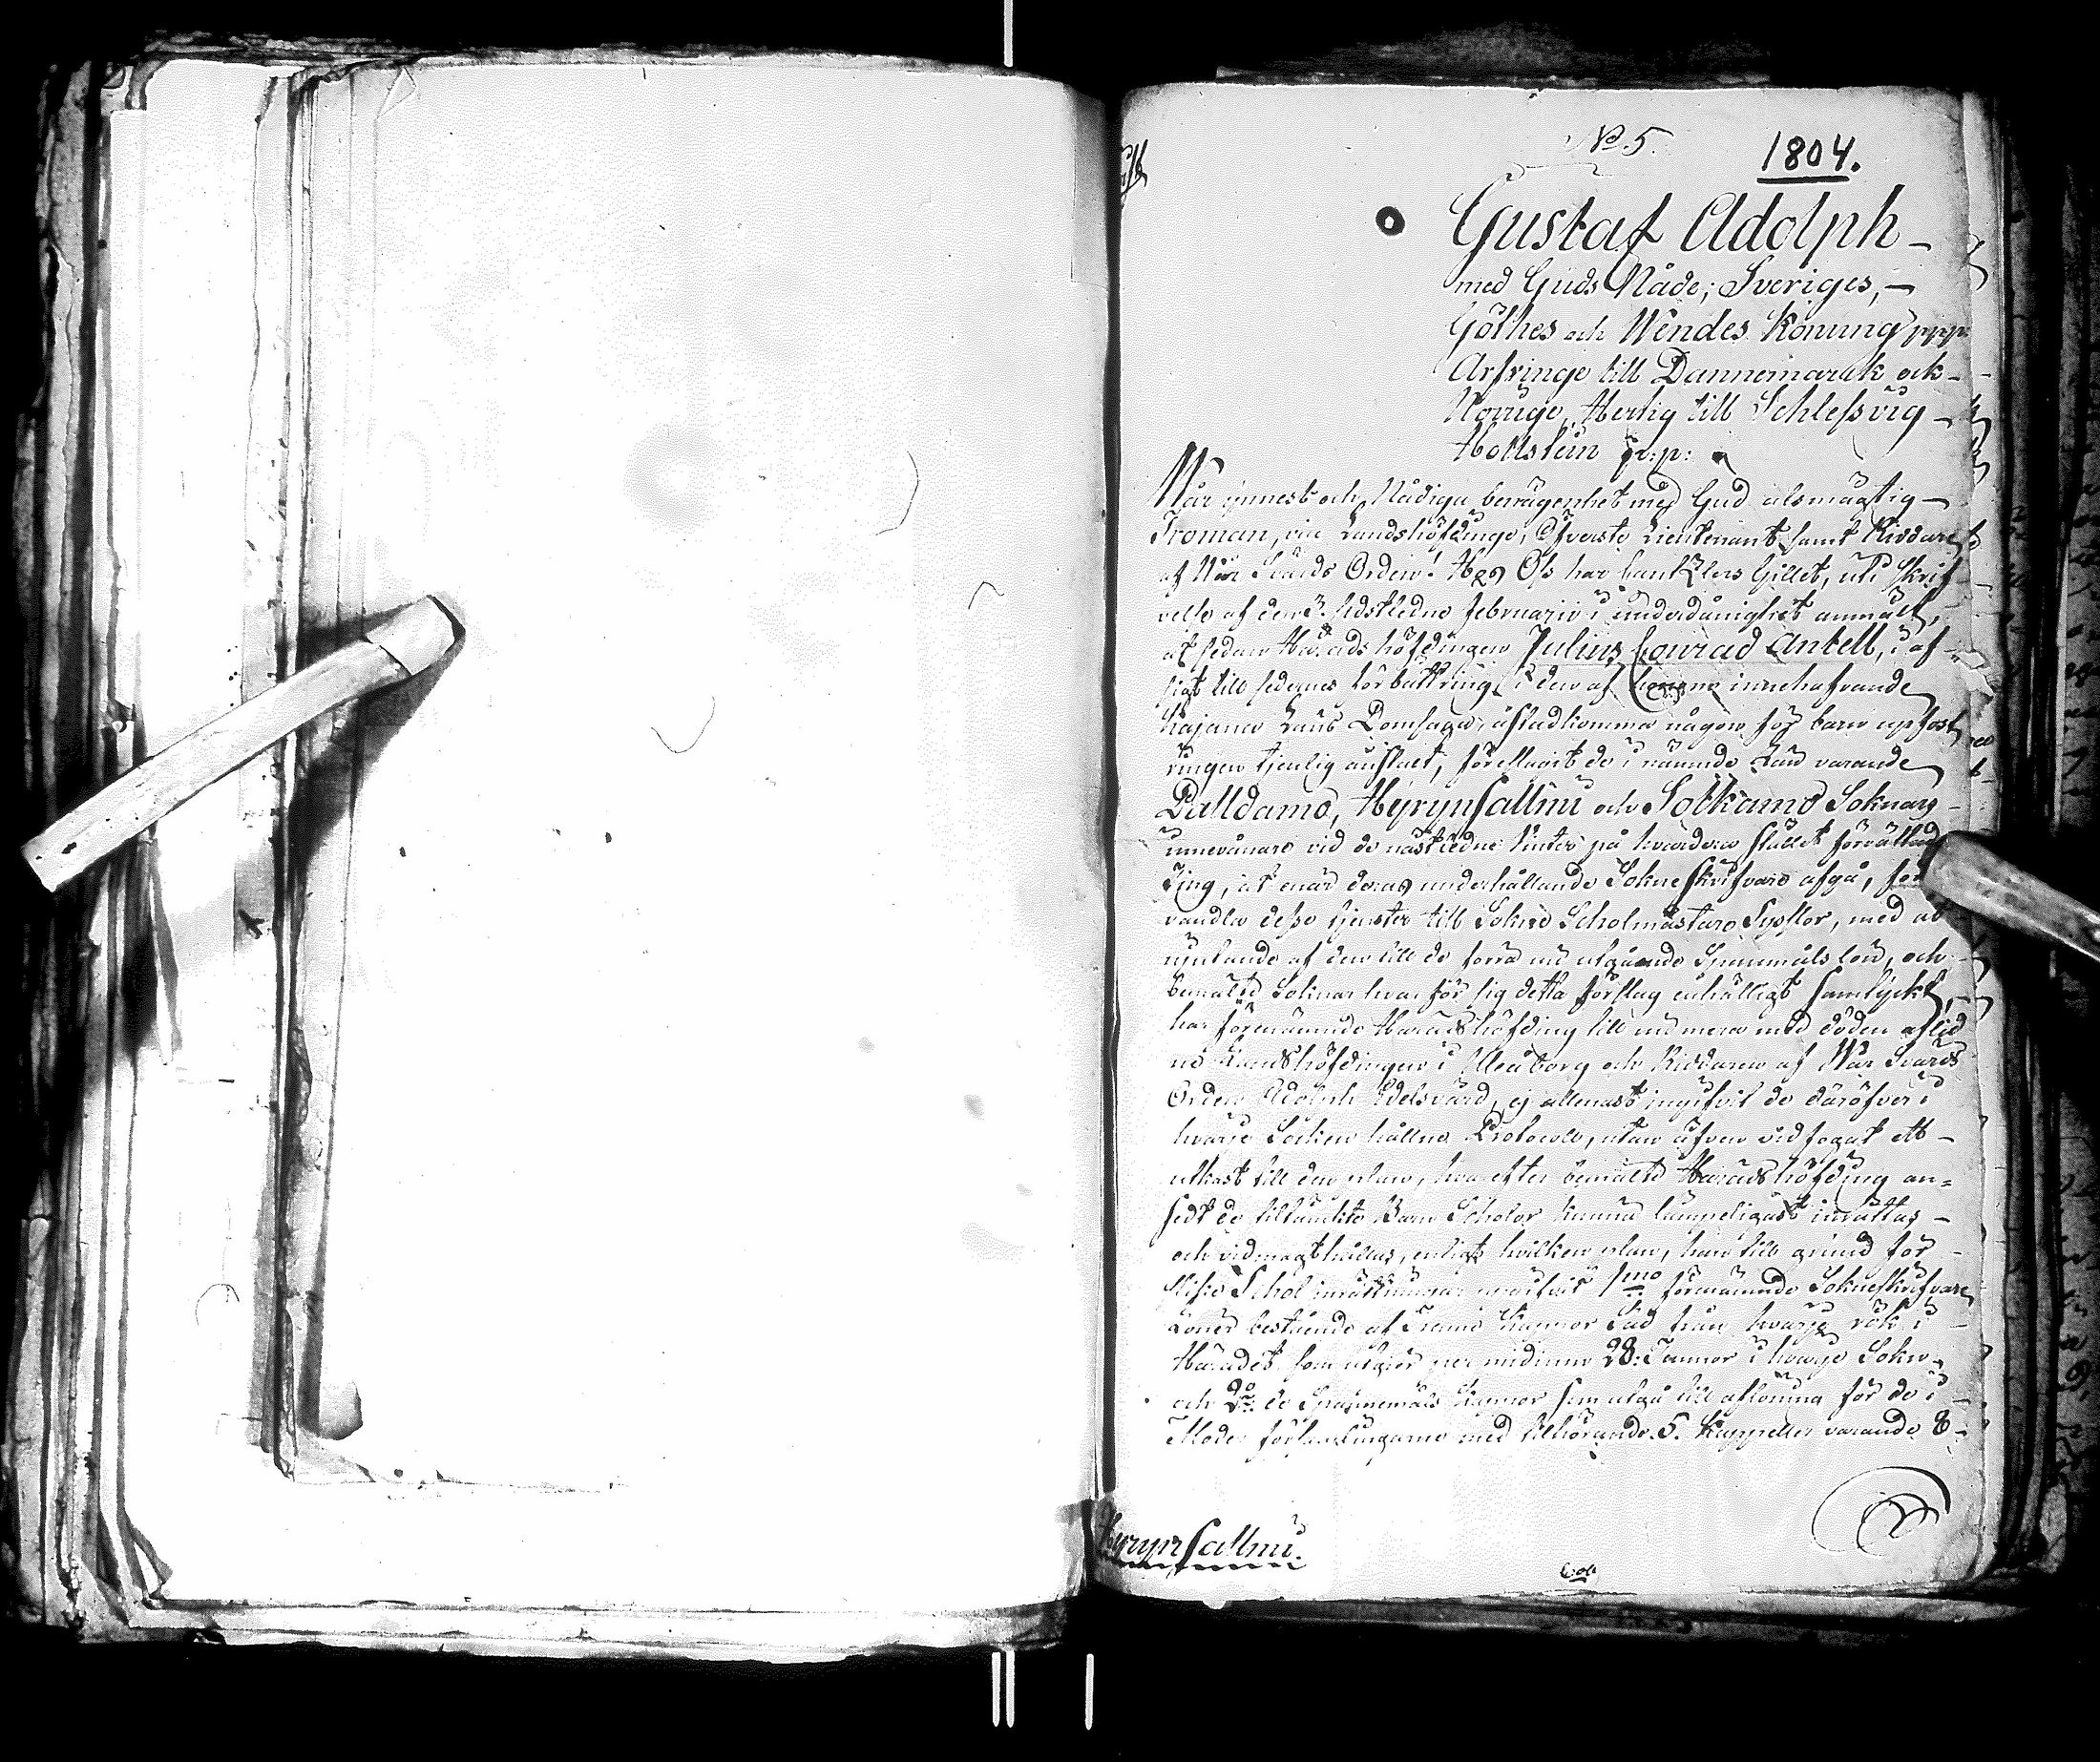 No. 5.
1804.
Gustaf Adolph
med Guds Nåde, Sveriges,
Göthes och Wendes Konung ppp:
Arfvinge till Dannemarck ock
Norrige, Hertig till Schlessvig
Hollstein p:p:
Wår ynnest och Nådiga benägenhet med Gud alsmägtig
Troman, vice Landshöfdinge, Öfverste Lieutenant samt Riddare
af Wår Svärds Orden! Hos Oss har Cantzlers Gillet, uti Skrif
velse af den 3. sidstledne februarii i underdånighet anmält,
at sedan Häradshöfdingen Julius Conrad Antell, i af
sigt till sedernes förbättring i den af honom innehafvande
Kajana Läns Domsaga, åstadkomma någon för barn upfost
ringen tjenlig anstalt, föreslagit de i nämnde Län varande
Palldamo, Hyrynsallmi och Sotkamo Soknars
innevånare vid de nästledne vinter på hvardera stället förrättade
Ting, at enär deras underhållande Sokneskrifvare afgå, för
vandla desse tjenster till Sokne Scholmästare Sysslor, med åt
njutande af den till de förra nu utgående Spannmåls lön, och
bemälte Soknar hvar för sig detta förslag enhälligt samtyckt,
har förenämnde Häradshöfding till nu mera med döden aflid
ne Landshöfdingen i Uleåborg och Riddaren af Wår Svärds
Orden Adolph Edelsvärd, ej allenast ingifvit de däröfver i
hvarje Socken hållne Protocoll, utan äfven vidfogat ett
utkast till den plan, hvarefter bemälte Häradshöfding an=
sedt de tilltänkte Barn Scholor kunna lämpeligast inrättas
och vidmagthållas, enligt hvilken plan, han till grund för
desse Schol inrättningar 1mo förenämnde Sokneskrifvare
Löner bestående af Trenne Kannor Säd från hvarje rök i
Häradet som utgör per medium 28: Tunnor i hvarje Sokn
och 2do de Spannemåls Kannor som utgå till aflöning för de i
Moder församlingarne med tillhörande 5. Kappeller varande 8
Hyrynsallmi.